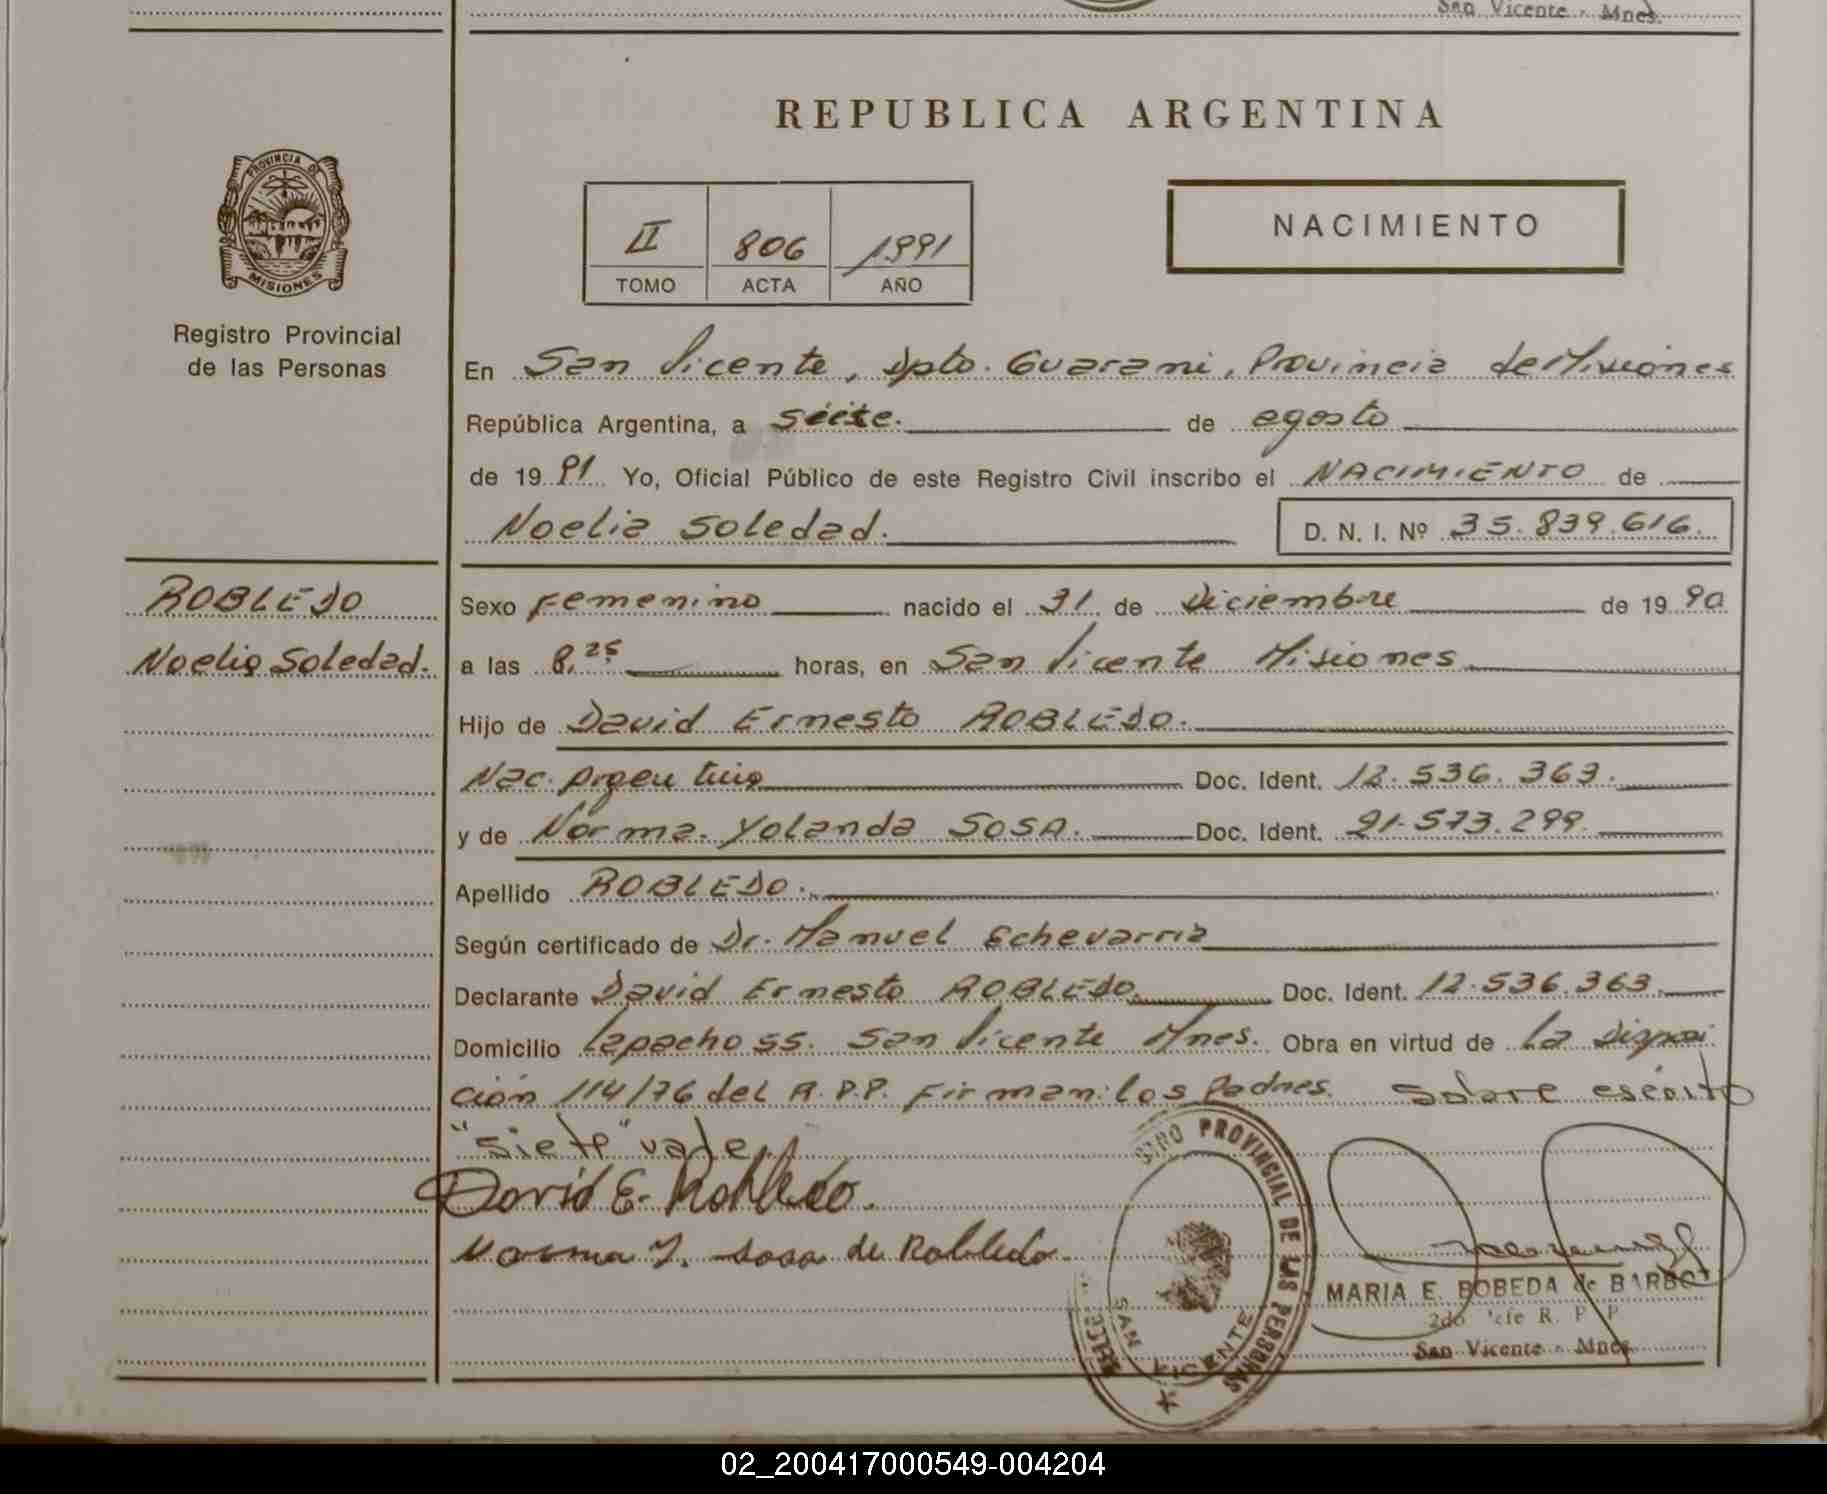 San Vicente - Mnes.
REPUBLICA ARGENTINA
PROVINCIA DE
MISIONES
Registro Provincial
de las Personas
II 806 1991
TOMO ACTA AÑO
NACIMIENTO
En San Vicente, Dpto. Guarani, Provincia de Misiones
República Argentina, a siete. de agosto
de 19 91 Yo, Oficial Público de este Registro Civil inscribo el NACIMIENTO de
Noelia Soledad. D. N. I. Nº 35.839.616.
ROBLEDO
Noelia Soledad.
Sexo Femenino nacido el 31 de Diciembre de 19 90
a las 8,25 horas, en San Vicente Misiones
Hijo de David Ernesto ROBLEDO.
Nac. Argentina Doc. Ident. 12.536.363.
y de Norma Yolanda SOSA. Doc. Ident. 21.573.299.
Apellido ROBLEDO.
Según certificado de Dr. Manuel Echevarria
Declarante David Ernesto ROBLEDO Doc. Ident. 12.536.363.
Domicilio Lapacho 55. San Vicente Mnes. Obra en virtud de la Disposi
ción 114/76 del R.P.P. Firman: los Padres. Sobre escrito
"siete" vade
David E. Robledo.
Norma Y. Sosa de Robledo.
PROVINCIAL DE LAS PERSONAS
SAN VICENTE
MARIA E. BOBEDA de BARBO
2do R. P. P.
San Vicente - Mnes.
02_200417000549-004204